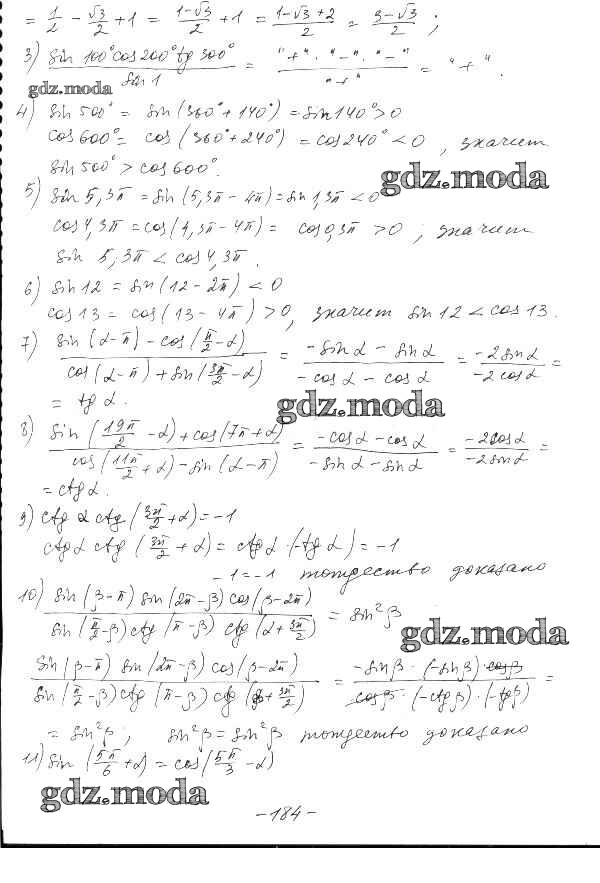 = 1/2 - √3/2 + 1 = (1-√3)/2 + 1 = (1-√3+2)/2 = (3-√3)/2 ;
3) (sin 100° cos 200° tg 300°)/(sin 1) = ("+" · "-" · "-")/("+") = "+" .
gdz.moda
4) sin 500° = sin (360° + 140°) = sin 140° > 0
cos 600° = cos (360° + 240°) = cos 240° < 0 , значит
sin 500° > cos 600°.
gdz.moda
5) sin 5,3π = sin (5,3π - 4π) = sin 1,3π < 0
cos 4,3π = cos (4,3π - 4π) = cos 0,3π > 0 ; значит
sin 5,3π < cos 4,3π .
6) sin 12 = sin (12 - 2π) < 0
cos 13 = cos (13 - 4π) > 0, значит sin 12 < cos 13.
7) (sin (α-π) - cos (π/2 - α))/(cos (α-π) + sin (3π/2 - α)) = (-sin α - sin α)/(-cos α - cos α) = (-2 sin α)/(-2 cos α) =
= tg α.
gdz.moda
8) (sin (19π/2 - α) + cos (7π + α))/(cos (11π/2 + α) - sin (α-π)) = (-cos α - cos α)/(-sin α - sin α) = (-2 cos α)/(-2 sin α) =
= ctg α.
9) ctg α ctg (3π/2 + α) = -1
ctg α ctg (3π/2 + α) = ctg α · (-tg α) = -1
-1 = -1 тождество доказано
10) (sin (β-π) sin (2π-β) cos (β-2π))/(sin (π/2-β) ctg (π-β) ctg (α + 3π/2)) = sin²β
gdz.moda
(sin (β-π) sin (2π-β) cos (β-2π))/(sin (π/2-β) ctg (π-β) ctg (β + 3π/2)) = (-sin β · (-sin β) cos β)/(cos β · (-ctg β) · (-tg β)) =
= sin²β ; sin²β = sin²β тождество доказано
11) sin (5π/6 + α) = cos (5π/3 - α)
gdz.moda
-184-